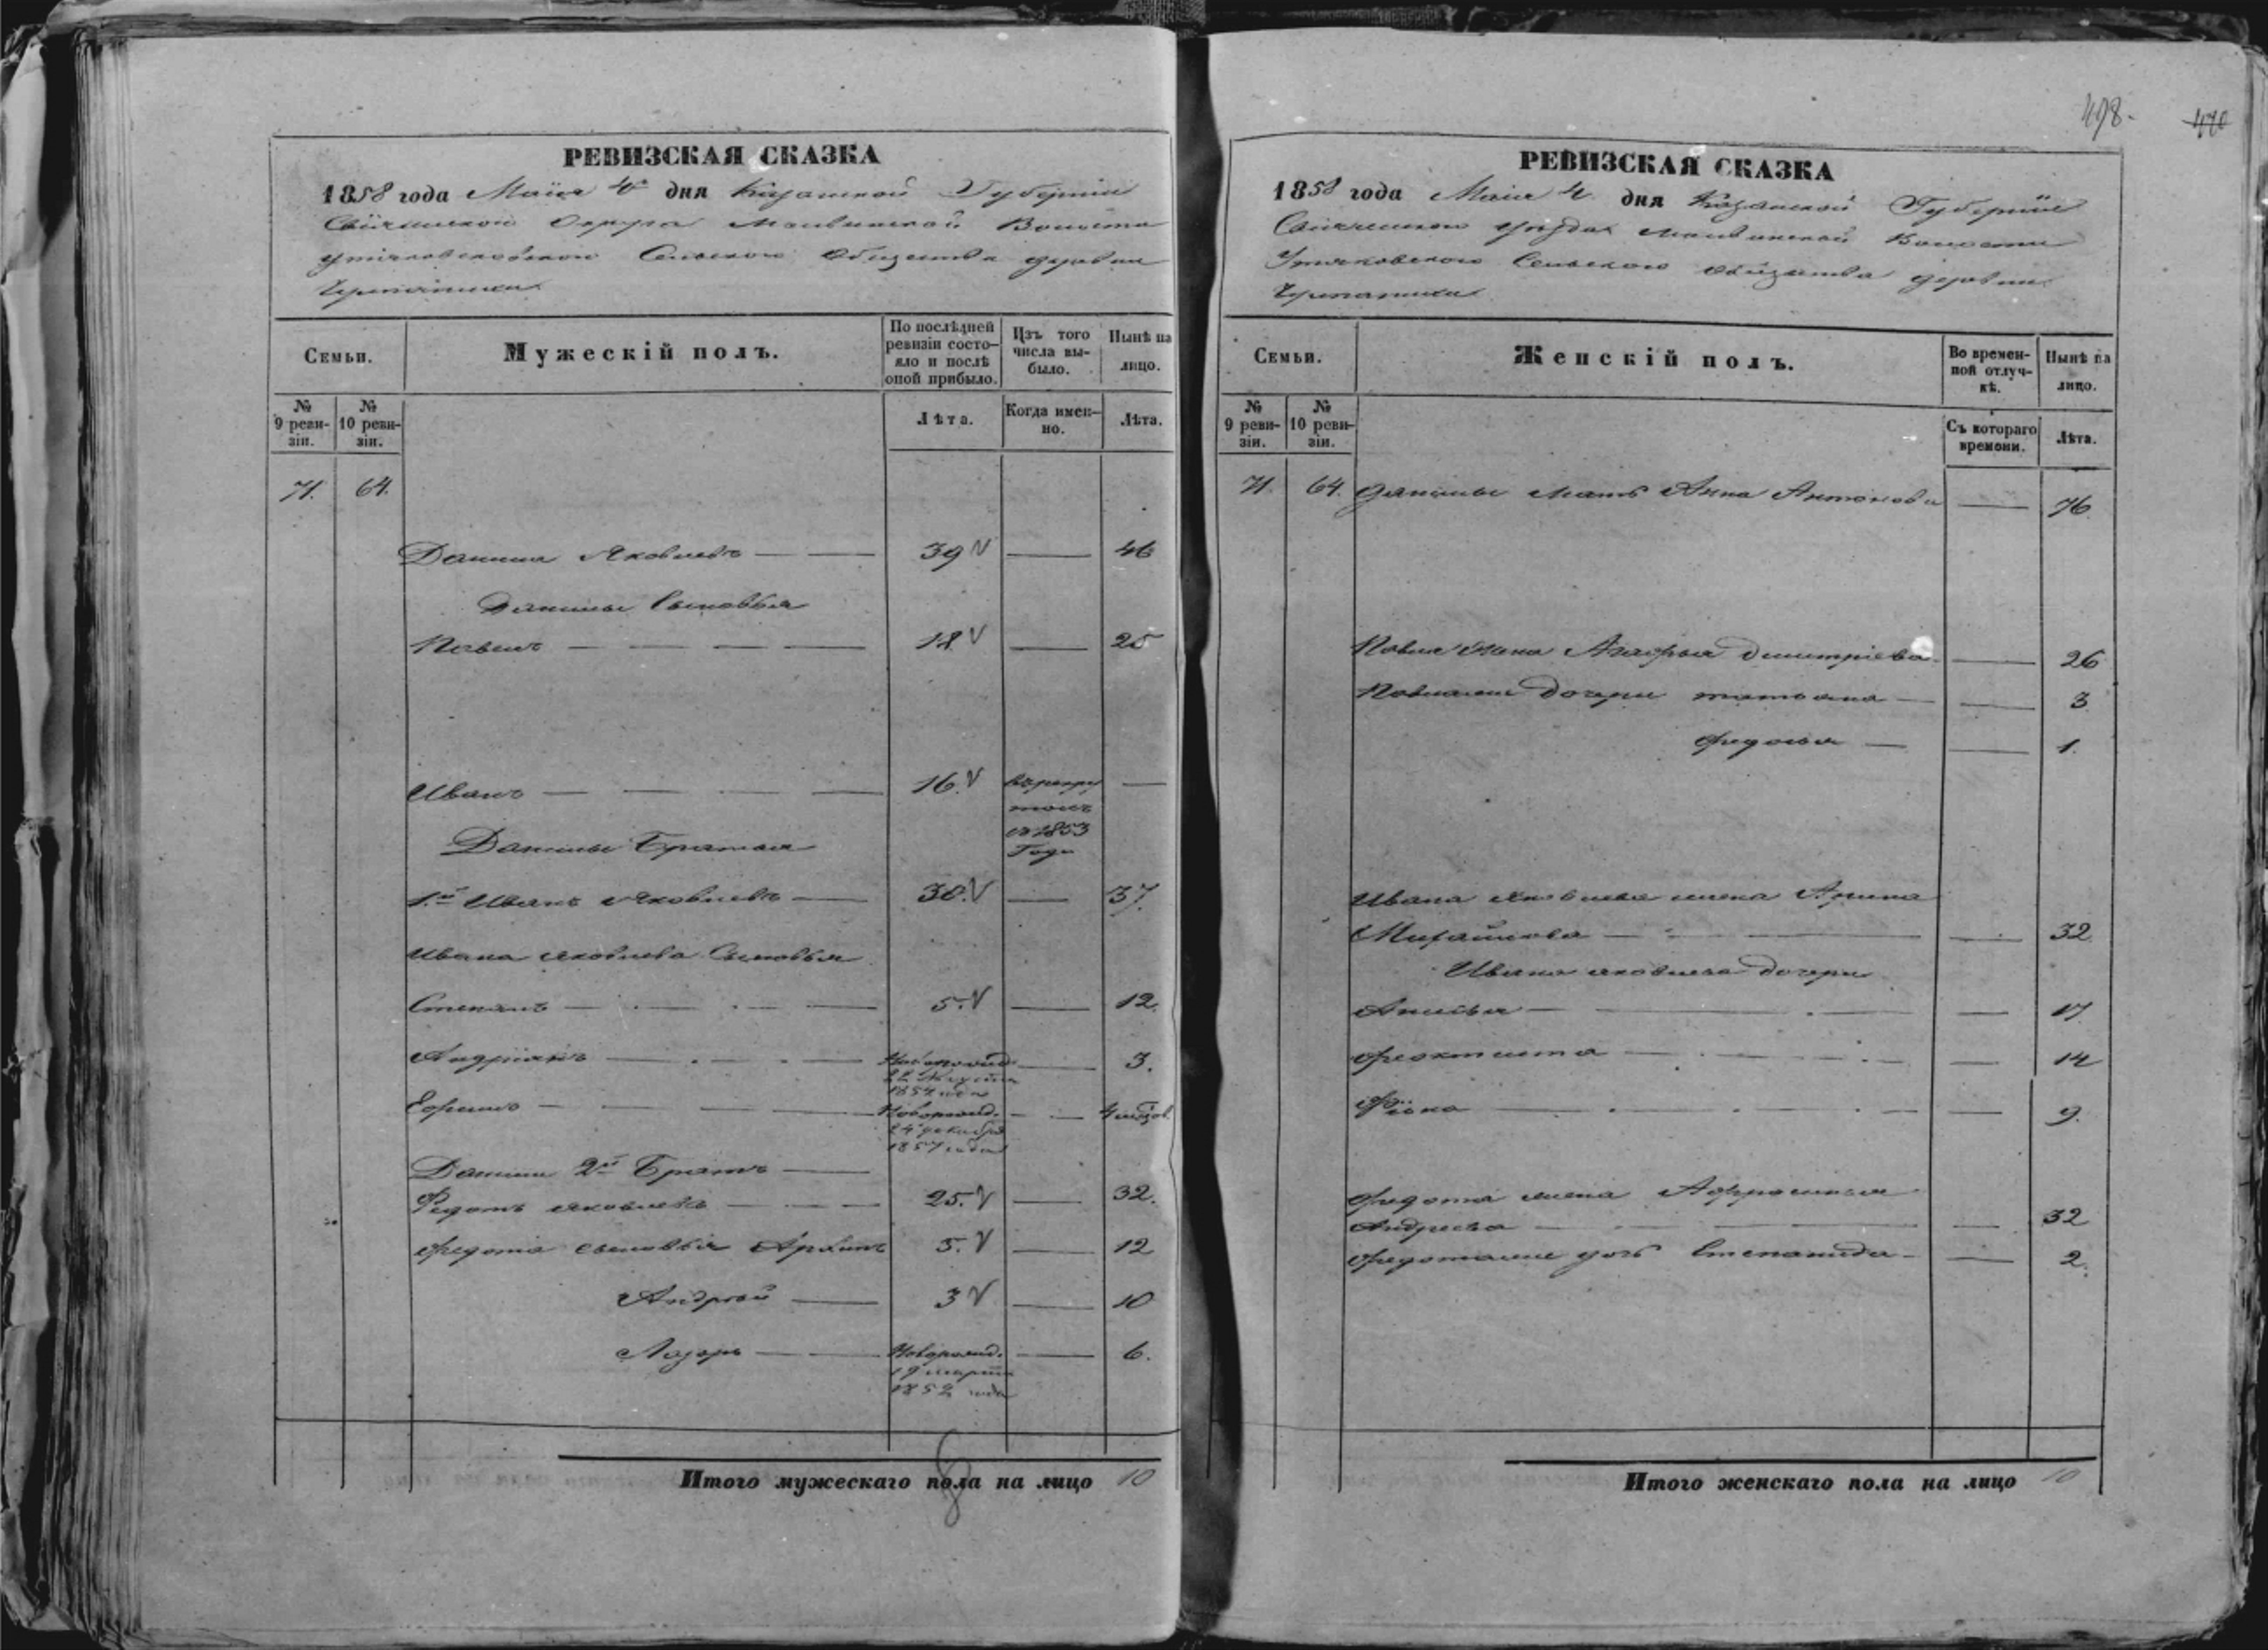 РЕВИЗСКАЯ СКАЗКА
1858 года Маія 4 дня Казанской Губерніи
Свіяжской Округа Волости
Сельскаго Общества деревни
Семьи.
Мужескій полъ.
По послѣдней ревизіи состо-
яло и послѣ оной прибыло.
Изъ того числа вы-
было.
Нынѣ на лицо.
№ 9 реви-
зіи.
№ 10 реви-
зіи.
Лѣта.
Когда имен-
но.
Лѣта.
71. 64.
Данила Яковлевъ — — 39 — 46
Данилы Сыновья
Павелъ — — — — 18 — 25
Иванъ — — — — 16. въ рекру
тахъ
съ 1853
Года —
Данилы Братья
1.й Иванъ Яковлевъ — 30. — 37.
Ивана Яковлева Сыновья
Степанъ — — — 5. — 12.
Андріянъ — — — Новорожд.
22 Августа
1854 года — 3.
Ефимъ — — — Новорожд.
24 декабря
1857 года — 4 мѣсяц.
Данилы 2й Братъ —
Федотъ Яковлевъ — — — 25. — 32.
Федота сыновья Архипъ 5. — 12
Андрей — 3 — 10
Лазарь — — Новорожд.
19 марта
1852 года — 6.
Итого мужескаго пола на лицо 10
8
478.
470
РЕВИЗСКАЯ СКАЗКА
1858 года Маія 4 дня Казанской Губерніи
Свіяжскаго уѣзда Волости
Утяковскаго Сельскаго Общества деревни
Семьи.
Женскій полъ.
Во времен-
ной отлуч-
кѣ.
Нынѣ на лицо.
№ 9 реви-
зіи.
№ 10 реви-
зіи.
Съ котораго
времени.
Лѣта.
71. 64. Данилы Мать Анна Антонова — 76
Павла Жена Агафья Дмитріева — 26
Павловы Дочери Татьяна — — 3
Федосья — — 1.
Ивана Яковлева жена Арина
Михайлова — — — 32
Ивана Яковлева Дочери
Анисья — — . — 17
Феоктиста — — 14
Фёкла — — 9.
Федота жена Афросинья
Андреева — — — 32
Федотовы дочь Степанида — — 2.
Итого женскаго пола на лицо 10